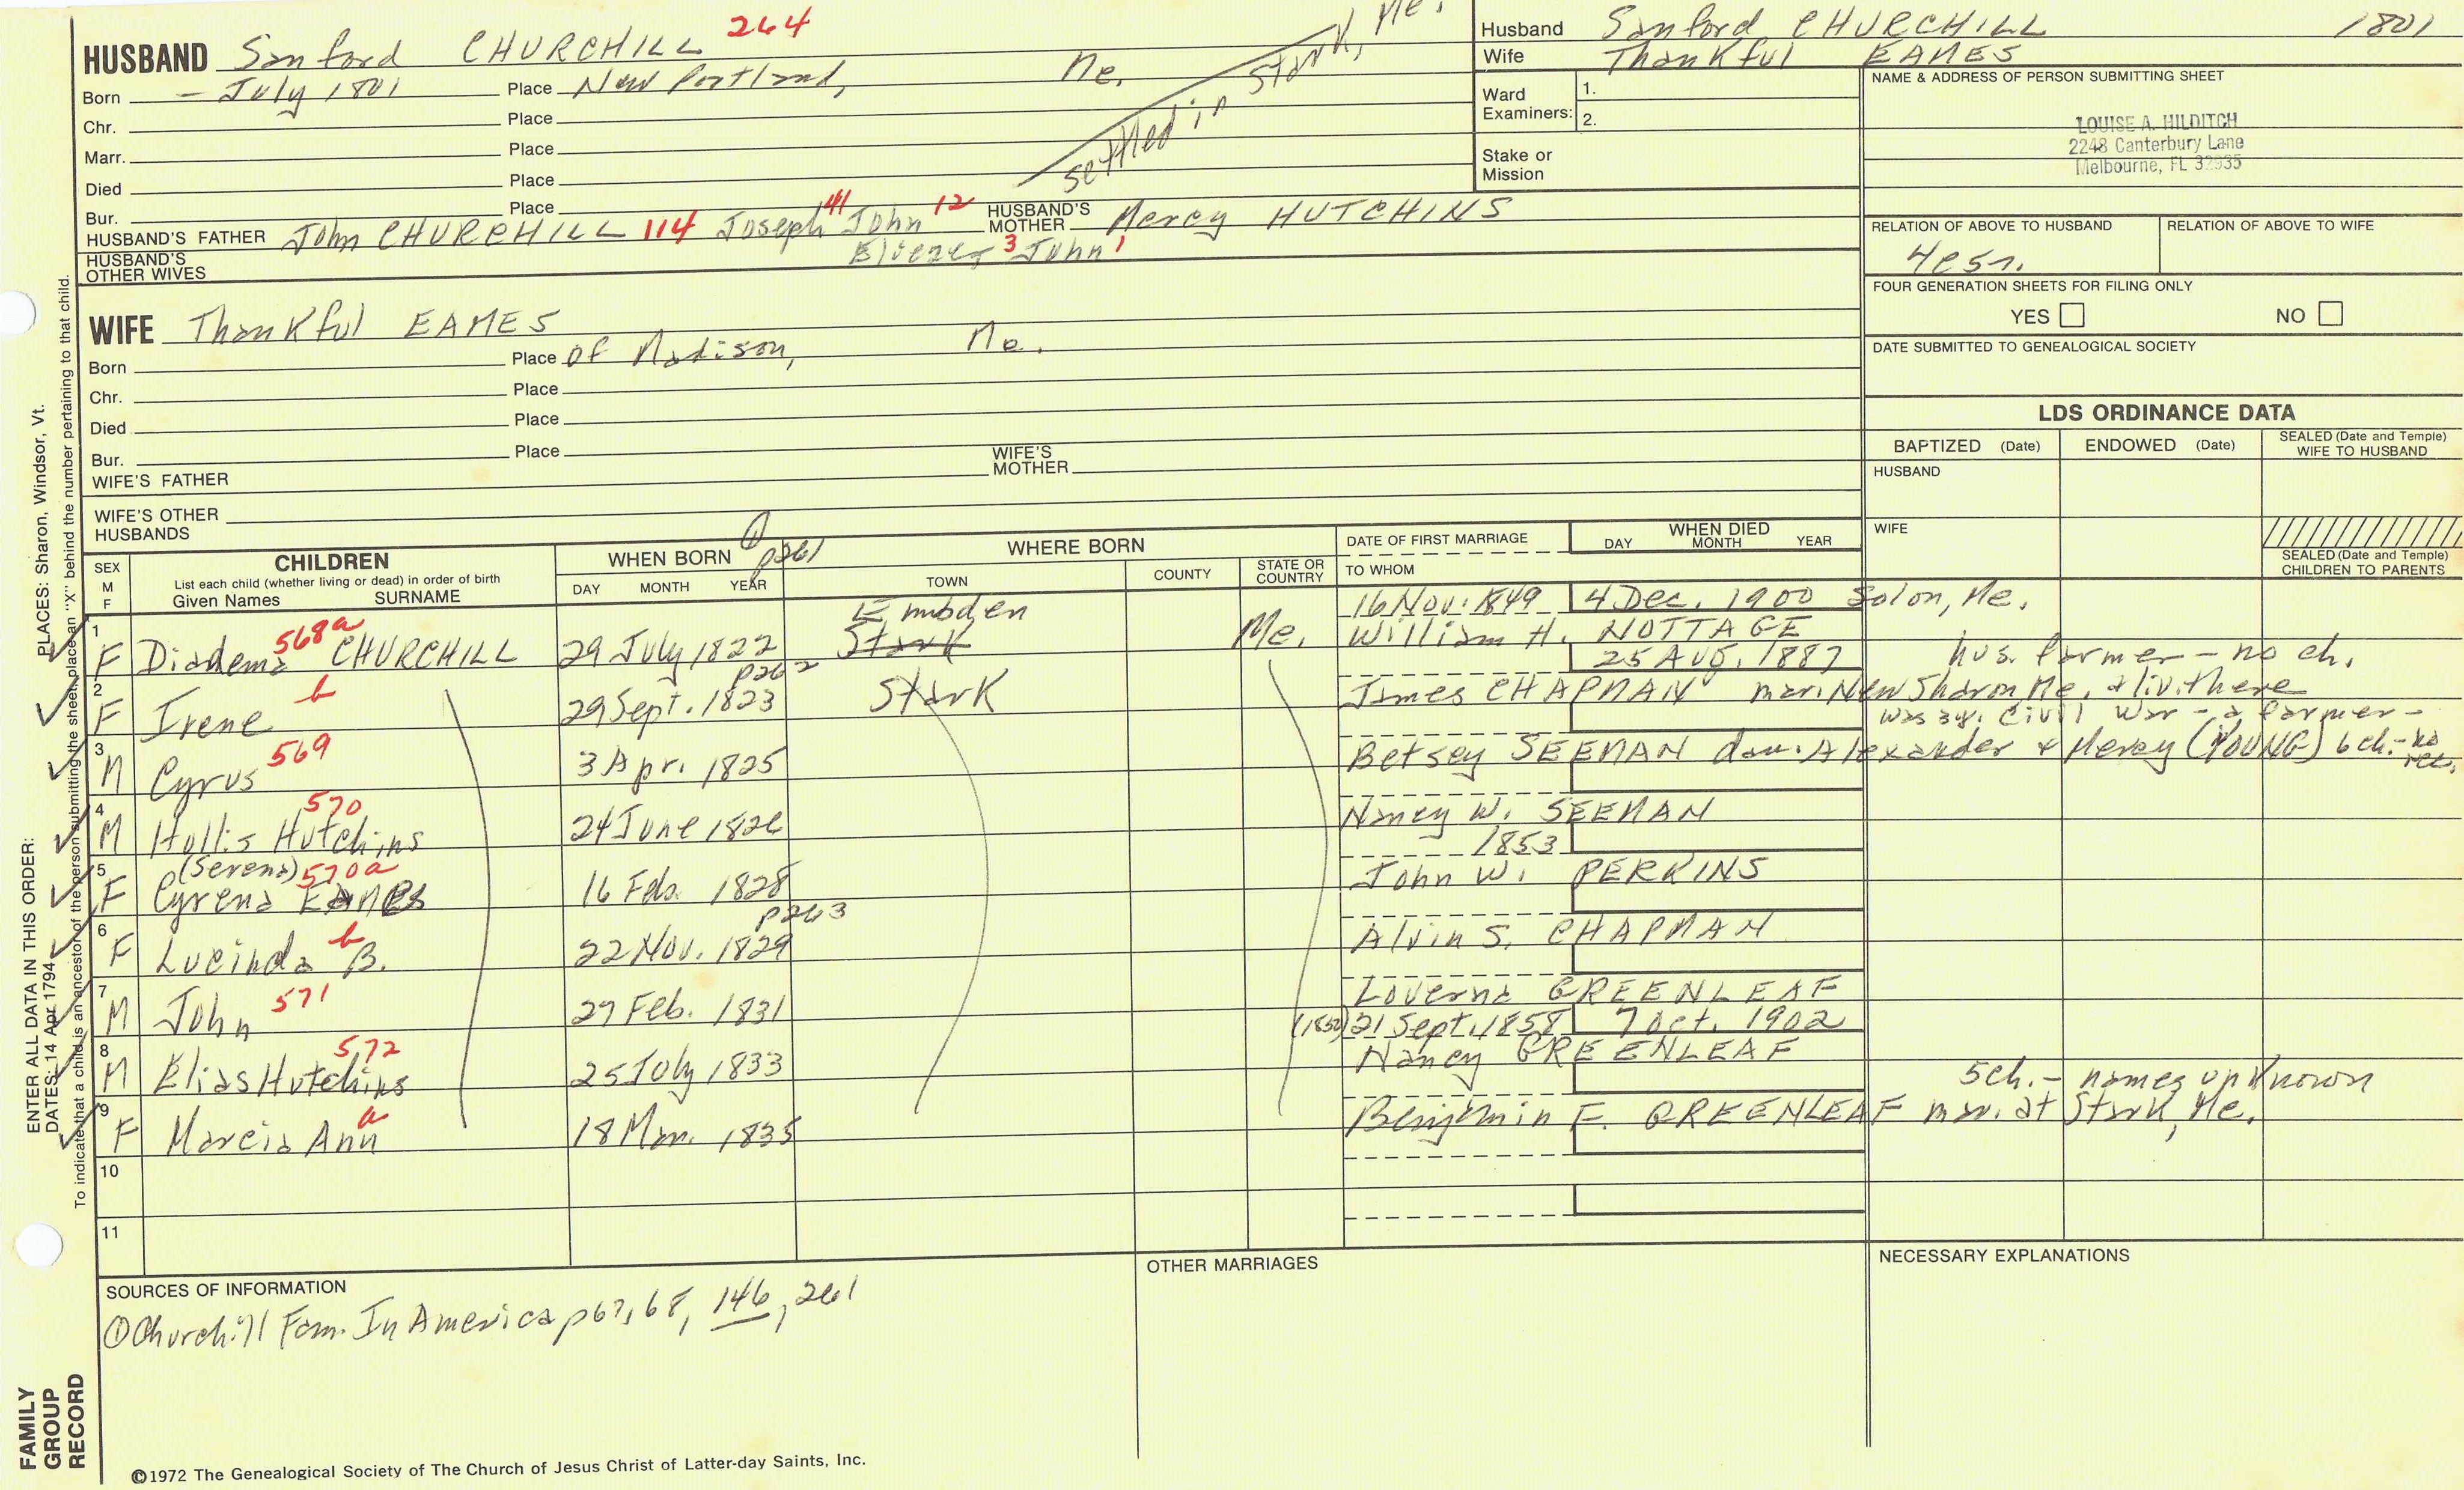 HUSBAND Sanford CHURCHILL 264
Born - July 1801 Place New Portland, Me.
settled in Stark, Me.
Chr. Place
Marr. Place
Died Place
Bur. Place
HUSBAND'S FATHER John CHURCHILL 114 Joseph 41 John 12 HUSBAND'S MOTHER Mercy HUTCHINS
Eliezer 3 John 1
HUSBAND'S OTHER WIVES
Husband Sanford CHURCHILL 1801
Wife Thankful EAMES
Ward Examiners: 1.
2.
Stake or Mission
NAME & ADDRESS OF PERSON SUBMITTING SHEET
LOUISE A. HILDITCH
2248 Canterbury Lane
Melbourne, FL 32935
RELATION OF ABOVE TO HUSBAND RELATION OF ABOVE TO WIFE
FOUR GENERATION SHEETS FOR FILING ONLY
YES NO
DATE SUBMITTED TO GENEALOGICAL SOCIETY
WIFE Thankful EAMES
Born Place of Madison, Me.
Chr. Place
Died Place
Bur. Place
WIFE'S FATHER WIFE'S MOTHER
WIFE'S OTHER HUSBANDS
LDS ORDINANCE DATA
BAPTIZED (Date) ENDOWED (Date) SEALED (Date and Temple) WIFE TO HUSBAND
HUSBAND
WIFE
SEALED (Date and Temple) CHILDREN TO PARENTS
SEX M F
CHILDREN
List each child (whether living or dead) in order of birth
Given Names SURNAME
WHEN BORN ① p261
DAY MONTH YEAR
WHERE BORN
TOWN COUNTY STATE OR COUNTRY
DATE OF FIRST MARRIAGE
TO WHOM
WHEN DIED
DAY MONTH YEAR
Embden 16 Nov. 1849 4 Dec. 1900 Solon, Me.
1 F Diadema 568a CHURCHILL 29 July 1822 Stark Me. William H. NOTTAGE
p262 25 Aug. 1887 hus. farmer - no ch.
2 F Irene b 29 Sept. 1823 Stark James CHAPMAN mar. New Sharon Me. & liv. there
was 3 yr. Civil War - a farmer -
3 M Cyrus 569 3 Apr. 1825 Betsey SEEMAN dau. Alexander & Mercy (YOUNG) 6 ch. - no rec.
4 M Hollis Hutchins 570 24 June 1826 Nancy W. SEEMAN
1853
5 F (Serena) Cyrena EAMES 570a 16 Feb. 1828 John W. PERKINS
p263
6 F Lucinda B. b 22 Nov. 1829 Alvin S. CHAPMAN
7 M John 571 27 Feb. 1831 Loverna GREENLEAF
(1852) 21 Sept. 1858 7 Oct. 1902
8 M Elias Hutchins 572 25 July 1833 Nancy GREENLEAF
5 ch. - names unknown
9 F Marcia Ann a 18 Mar. 1835 Benjamin F. GREENLEAF mar. at Stark, Me.
10
11
SOURCES OF INFORMATION
① Churchill Fam. In America p67, 68, 146, 261
OTHER MARRIAGES
NECESSARY EXPLANATIONS
©1972 The Genealogical Society of The Church of Jesus Christ of Latter-day Saints, Inc.
FAMILY GROUP RECORD
ENTER ALL DATA IN THIS ORDER:
DATES: 14 Apr 1794 PLACES: Sharon, Windsor, Vt.
To indicate that a child is an ancestor of the person submitting the sheet, place an "X" behind the number pertaining to that child.